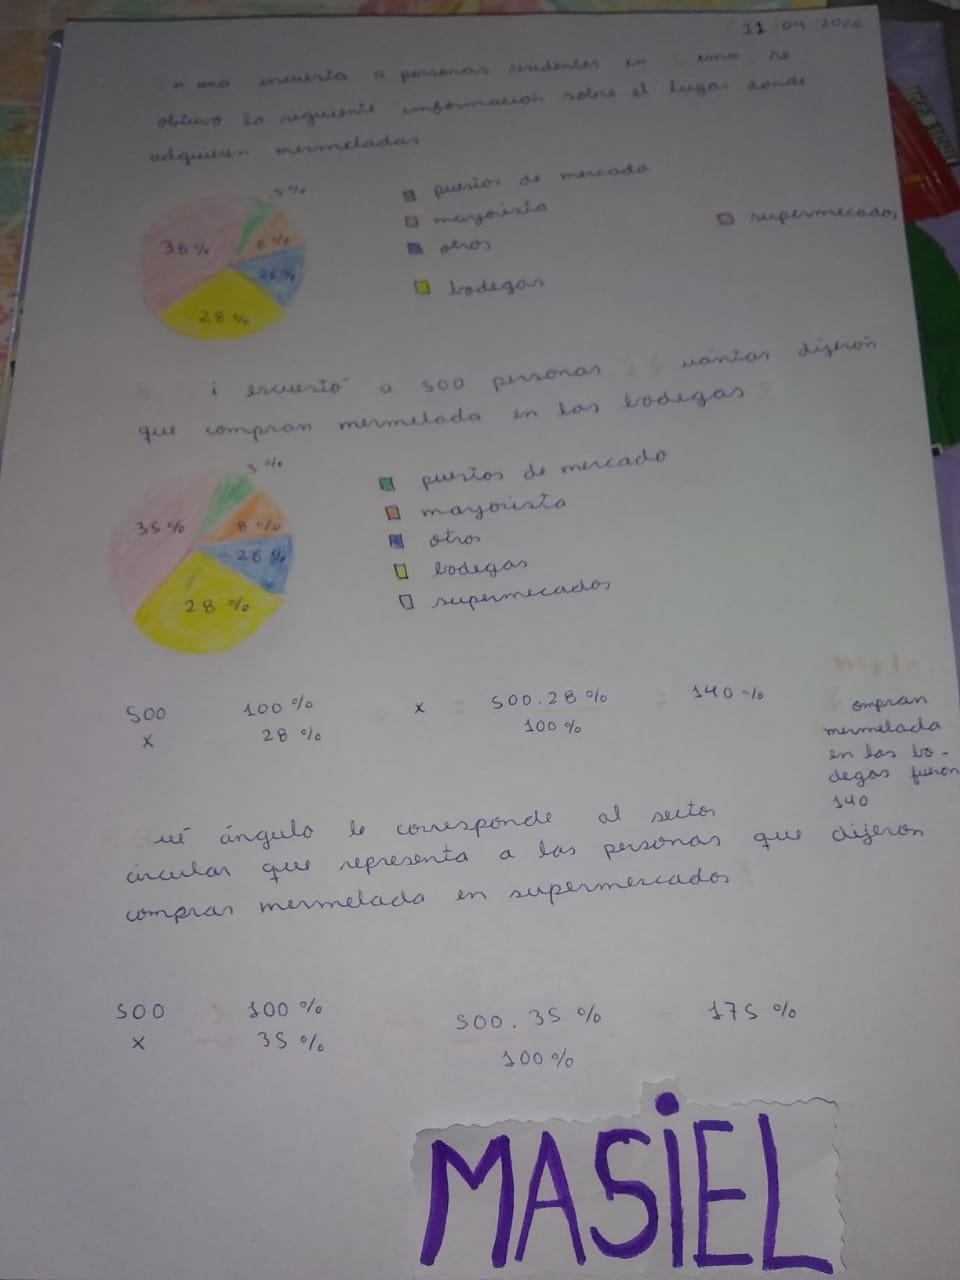 21 04 2020
n una encuesta a personas residentes en ima se
obtuvo la siguiente imformación sobre el lugar donde
adquieren mermeladas
3%
35% 8%
26%
28%
puestos de mercado
mayorista
otros
bodegas
supermecados
i escuestó a 500 personas uántas dijerón
que compran mermelada en las bodegas
3%
35% 8%
26%
28%
puestos de mercado
mayorista
otros
bodegas
supermecados
500 100% x = 500.28% = 140%
x 28% 100%
ompran
mermelada
en las bo-
degas fueron
140
ué ángulo le corresponde al sector
circular que representa a las personas que dijeron
comprar mermelada en supermercados
500 100% 500.35% 175%
x 35% 100%
MASiEL